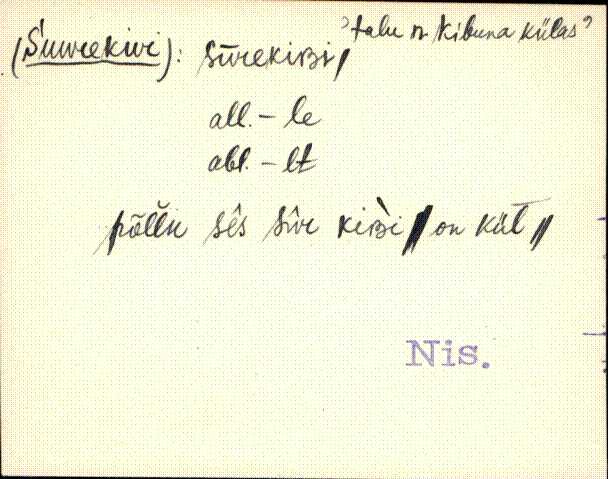 (Suurekivi): sūrekiʙi, 'talu n Kibuna külas'
all. – le
abl. – lt
põllu sês sûre kiʙi on küll
Nis.